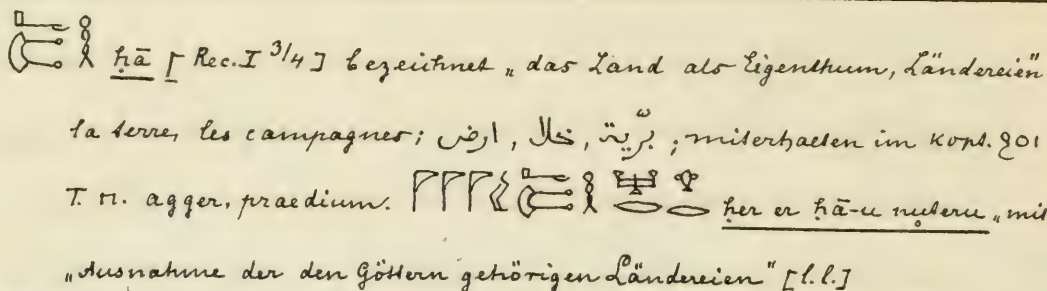 ḥā [Rec. I 3/4] bezeichnet „das Land als Eigenthum, Ländereien"
la terre, les campagnes; ارض, خلا, برّية; miterhalten im kopt. ϩⲟⲓ
T. M. agger, praedium. ḥer er ḥā-u nuteru „mit
„Ausnahme der den Göttern gehörigen Ländereien" [l.l.]